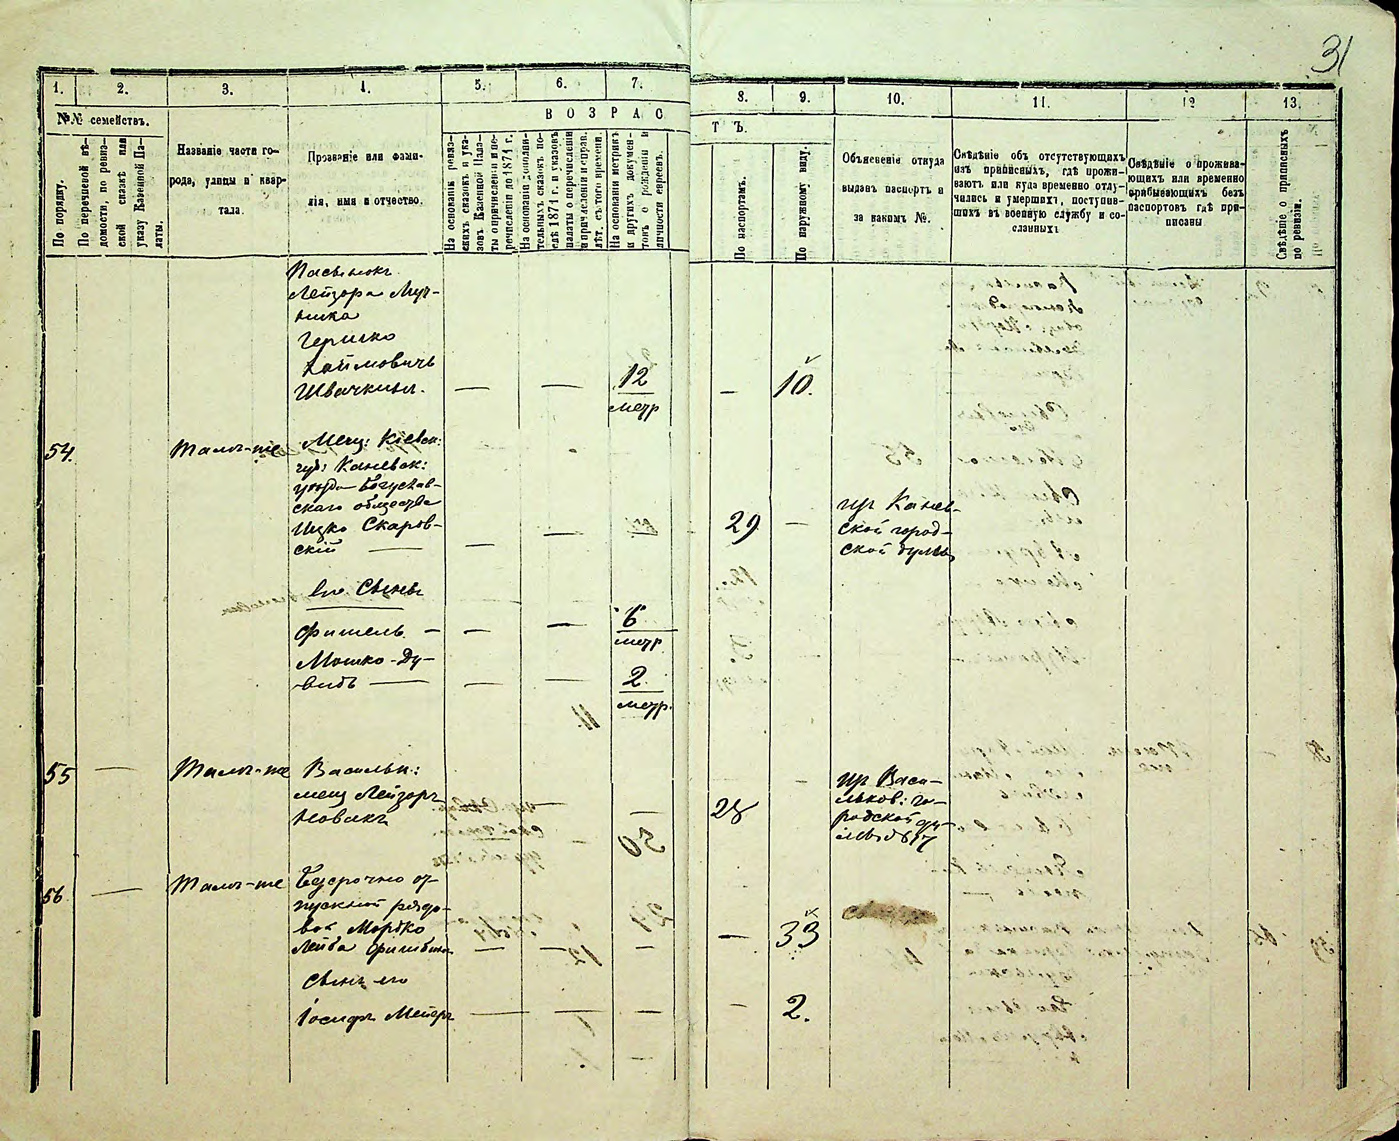 31
1. 2. 3. 4. 5. 6. 7. 8. 9. 10. 11. 12 13.
№№ семействъ.
По порядку.
По перешевой вѣ-
домости, по ревиз-
ской сказкѣ или
указу Казенной Па-
латы.
Названіе части го-
рода, улицы и квар-
тала.
Прозваніе или фами-
лія, имя и отчество.
ВОЗРАС
ТЪ.
На основаніи ревиз-
скихъ сказокъ и ука-
зовъ Казенной Пала-
ты о причисленіи и пе-
речисленіи до 1871 г.
На основаніи дополни-
тельныхъ сказокъ по-
слѣ 1871 г. и указовъ
палаты о перечисленіи
и причисленіи и справ.
лѣт. съ того времени.
На основаніи метрикъ
и другихъ докумен-
товъ о рожденіи и
личности евреевъ.
По паспортамъ.
По наружному виду.
Объясненіе откуда
выданъ паспортъ и
за какимъ №.
Свѣдѣніе объ отсутствующихъ
изъ приписныхъ, гдѣ прожи-
ваютъ или куда временно отлу-
чились и умершихъ, поступив-
шихъ въ военную службу и со-
сланныхъ
Свѣдѣніе о прожива-
ющихъ или временно
прибывающихъ безъ
паспортовъ гдѣ при-
писаны
Свѣдѣніе о приписныхъ
по ревизіи.
Пасынокъ
Лейзора Муч-
ника
Гершко
Хаймовичъ
Швачкинъ. — — 12 метр — 10.
54. Тамъ-же Мещ: Кіевск:
губ: Каневск:
уѣзда Богуслав-
скаго общества
Ицко Скаров-
скій — — — 29 — изъ Канев-
ской город-
ской думы
Его Сыны
Фишель — — — 6 метр
Мошко-Ду-
видъ — — — 2 метр.
55 — Тамъ-же Васильк:
мещ Лейзоръ
Новакъ — 28 — изъ Васи-
льков: го-
родской ду-
мы
56 — Тамъ-же Безсрочно от-
пускной рядо-
вой Мордко
Лейба — — — — 33
сынъ его
Іосифъ Мейеръ — — — — 2.